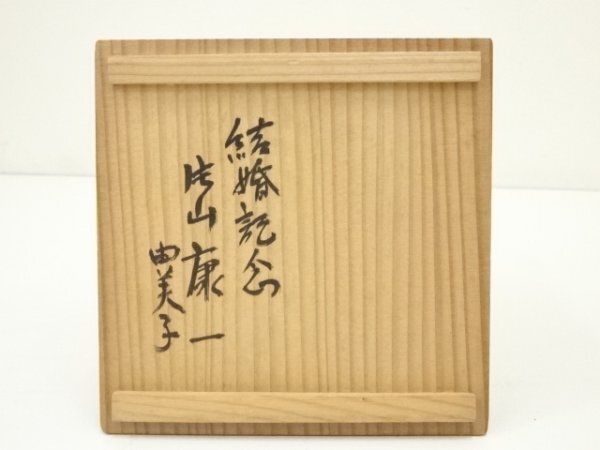 結婚記念
片山康一
由美子